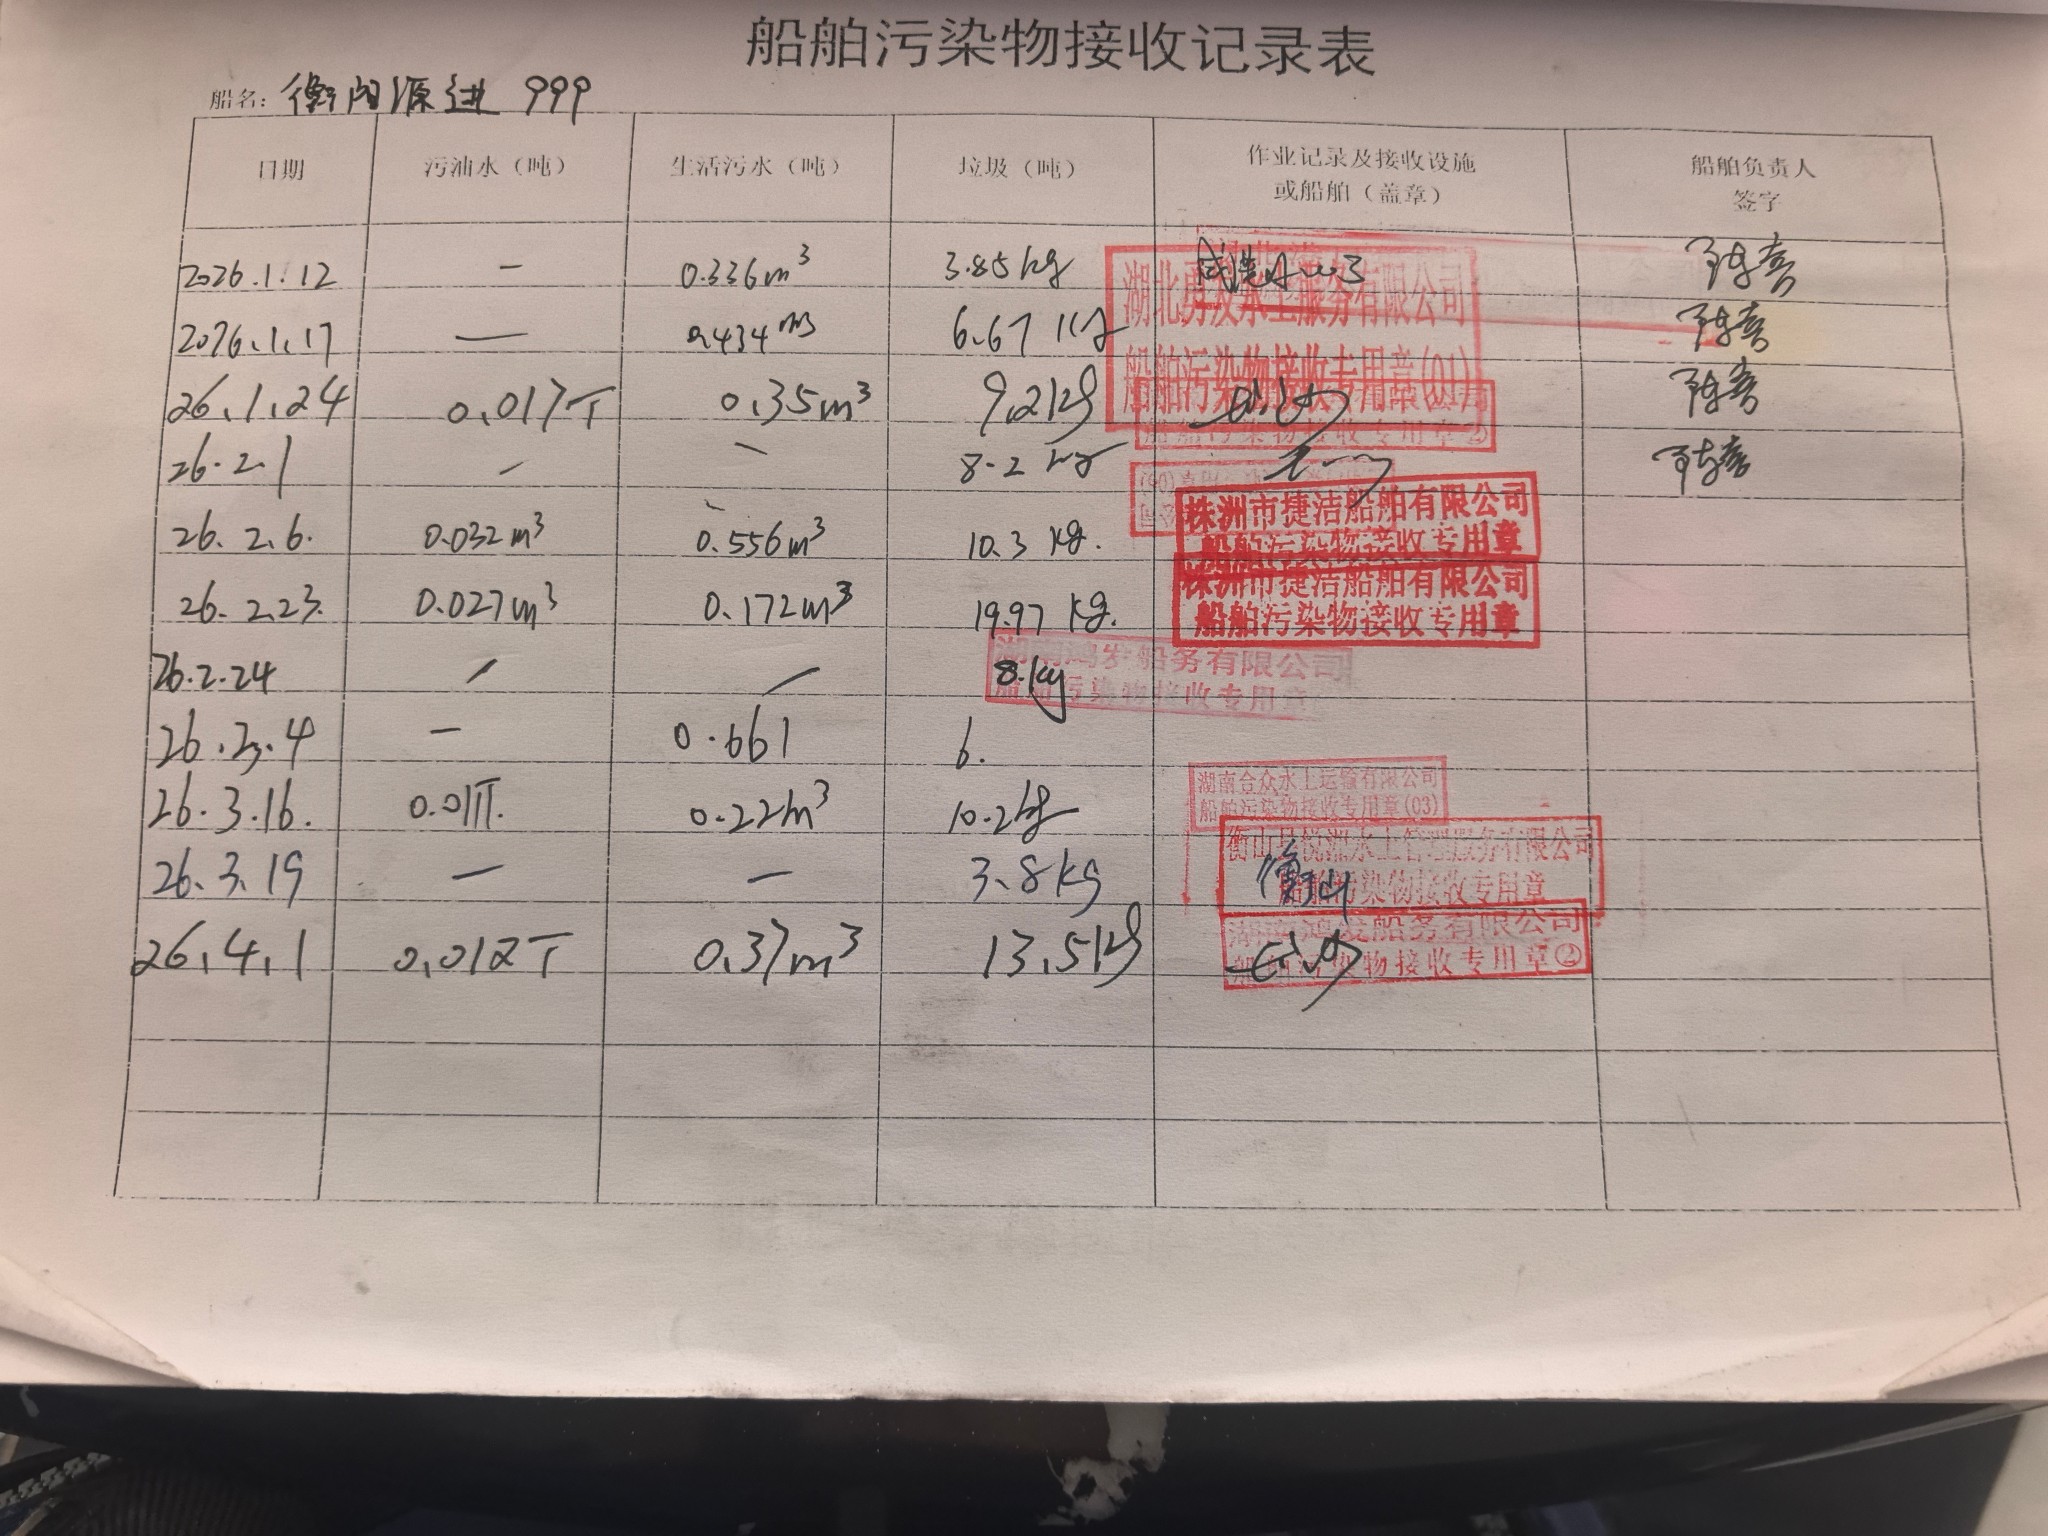 船舶污染物接收记录表
船名：衡阳源进 999
日期 污油水（吨） 生活污水（吨） 垃圾（吨） 作业记录及接收设施或船舶（盖章） 船舶负责人签字
2026.1.12 — 0.336m³ 3.85kg
2026.1.17 — 0.434m³ 6.67kg
湖北勇发水上服务有限公司
船舶污染物接收专用章(01)
26.1.24 0.017T 0.35m³ 9.2kg
船舶污染物接收专用章②
26.2.1 — — 8.2kg
26.2.6. 0.032m³ 0.556m³ 10.3kg.
株洲市捷洁船舶有限公司
船舶污染物接收专用章
26.2.23. 0.027m³ 0.172m³ 19.97kg.
株洲市捷洁船舶有限公司
船舶污染物接收专用章
26.2.24 / / 8.kg
湖南鸿发船务有限公司
船舶污染物接收专用章
26.3.4 — 0.661 6.
26.3.16. 0.011T. 0.22m³ 10.2kg
湖南合众水上运输有限公司
船舶污染物接收专用章(03)
26.3.19 — — 3.8kg 衡山
衡山县悦湘水上管理服务有限公司
船舶污染物接收专用章
26.4.1 0.012T 0.37m³ 13.5kg
湖南鸿发船务有限公司
船舶污染物接收专用章②